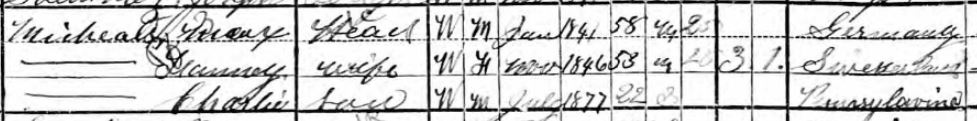 Micheals, Max Head W M Jan 1841 58 M 25 Germany
Fanney wife W F Nov 1846 53 M 25 3 1 Switzerland
Charlie Son W M July 1877 22 S Pennsylavina